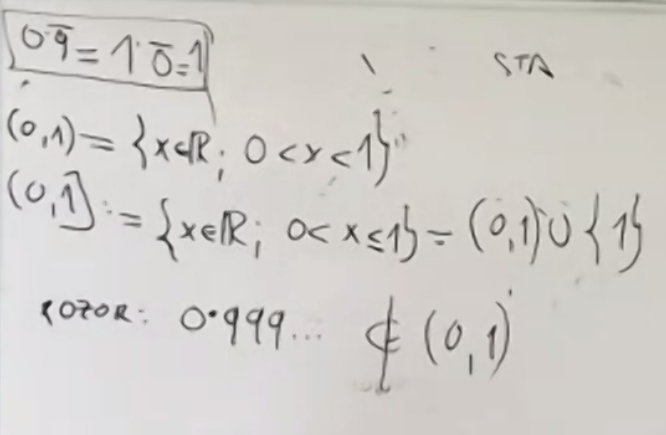 0·9̅ = 1·0̅ = 1
STA
(0,1) = {x∈ℝ; 0<x<1}
(0,1] := {x∈ℝ; 0<x≤1} = (0,1)∪{1}
POZOR: 0·999... ∉ (0,1)